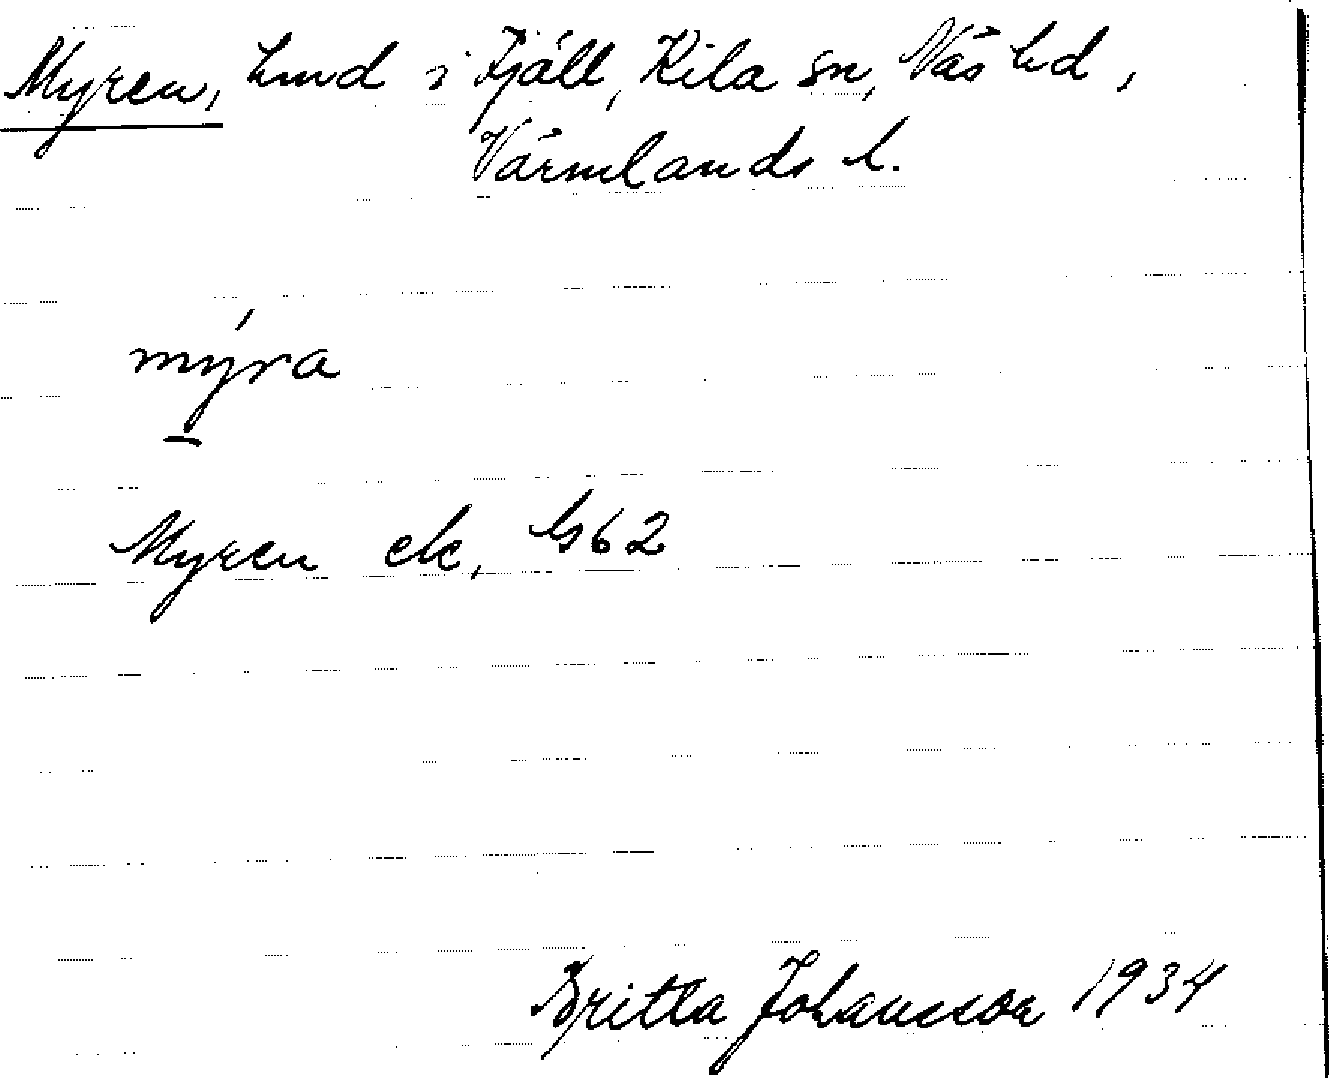 Myren, hmd i Fjäll, Kila sn, Näs hd,
Värmlands l.
mý̱ra
Myren ek, G62
Britta Johansson 1934